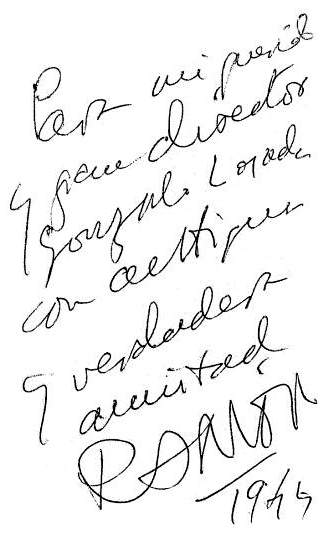 Para mi querido
y gran director
Gonzalo Losada
con antigua
y verdadera
amistad
RAMÓN
1944